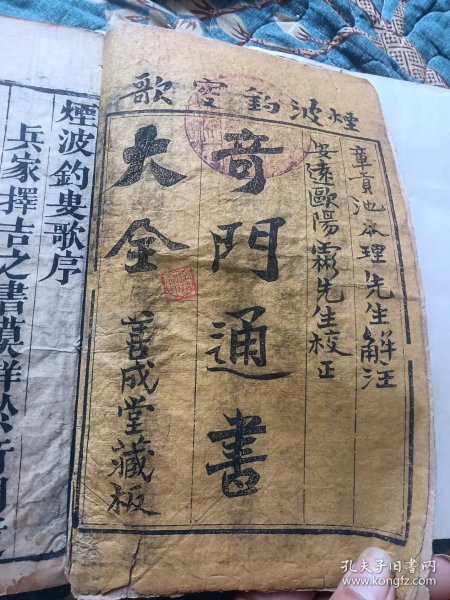 煙波釣叟歌
章貢池本理先生解注
安遠歐陽霖先生校正
奇門通書
大全
善成堂藏板
煙波釣叟歌序
兵家擇吉之書莫詳於奇門
孔夫子旧书网
www.kongfz.com